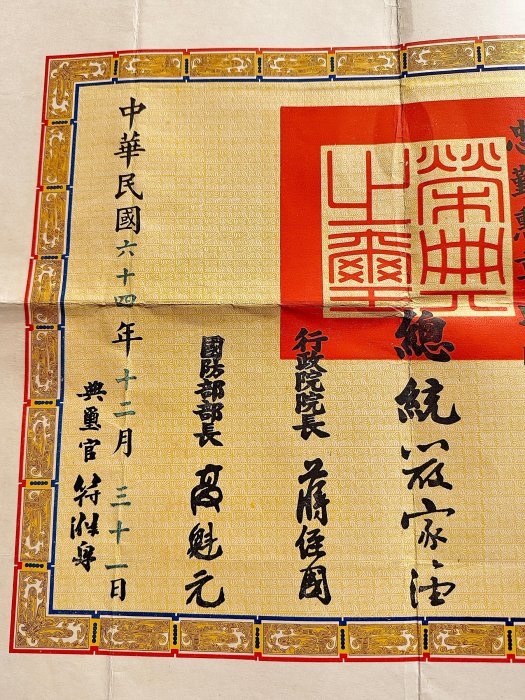 忠勤勳章
榮典之璽
總統 嚴家淦
行政院院長 蔣經國
國防部部長 高魁元
中華民國六十四年十二月三十一日
典璽官 符滌